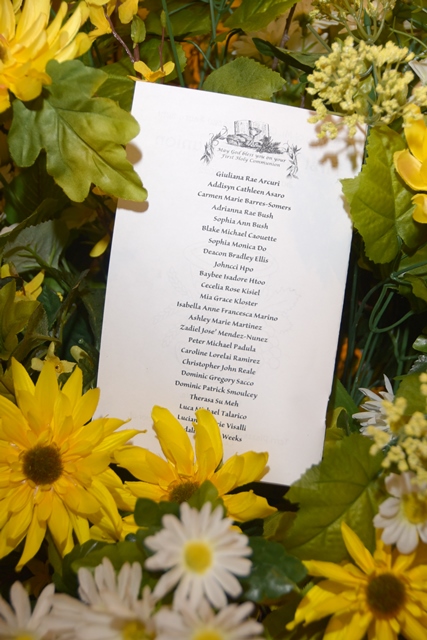 May God Bless you on your
First Holy Communion
Giuliana Rae Arcuri
Addisyn Cathleen Asaro
Carmen Marie Barres-Somers
Adrianna Rae Bush
Sophia Ann Bush
Blake Michael Caouette
Sophia Monica Do
Deacon Bradley Ellis
Johncci Hpo
Baybee Isadore Htoo
Cecelia Rose Kisiel
Mia Grace Kloster
Isabella Anne Francesca Marino
Ashley Marie Martinez
Zadiel Jose' Mendez-Nunez
Peter Michael Padula
Caroline Lorelai Ramirez
Christopher John Reale
Dominic Gregory Sacco
Dominic Patrick Smoulcey
Therasa Su Meh
Luca Michael Talarico
Visalli
Weeks